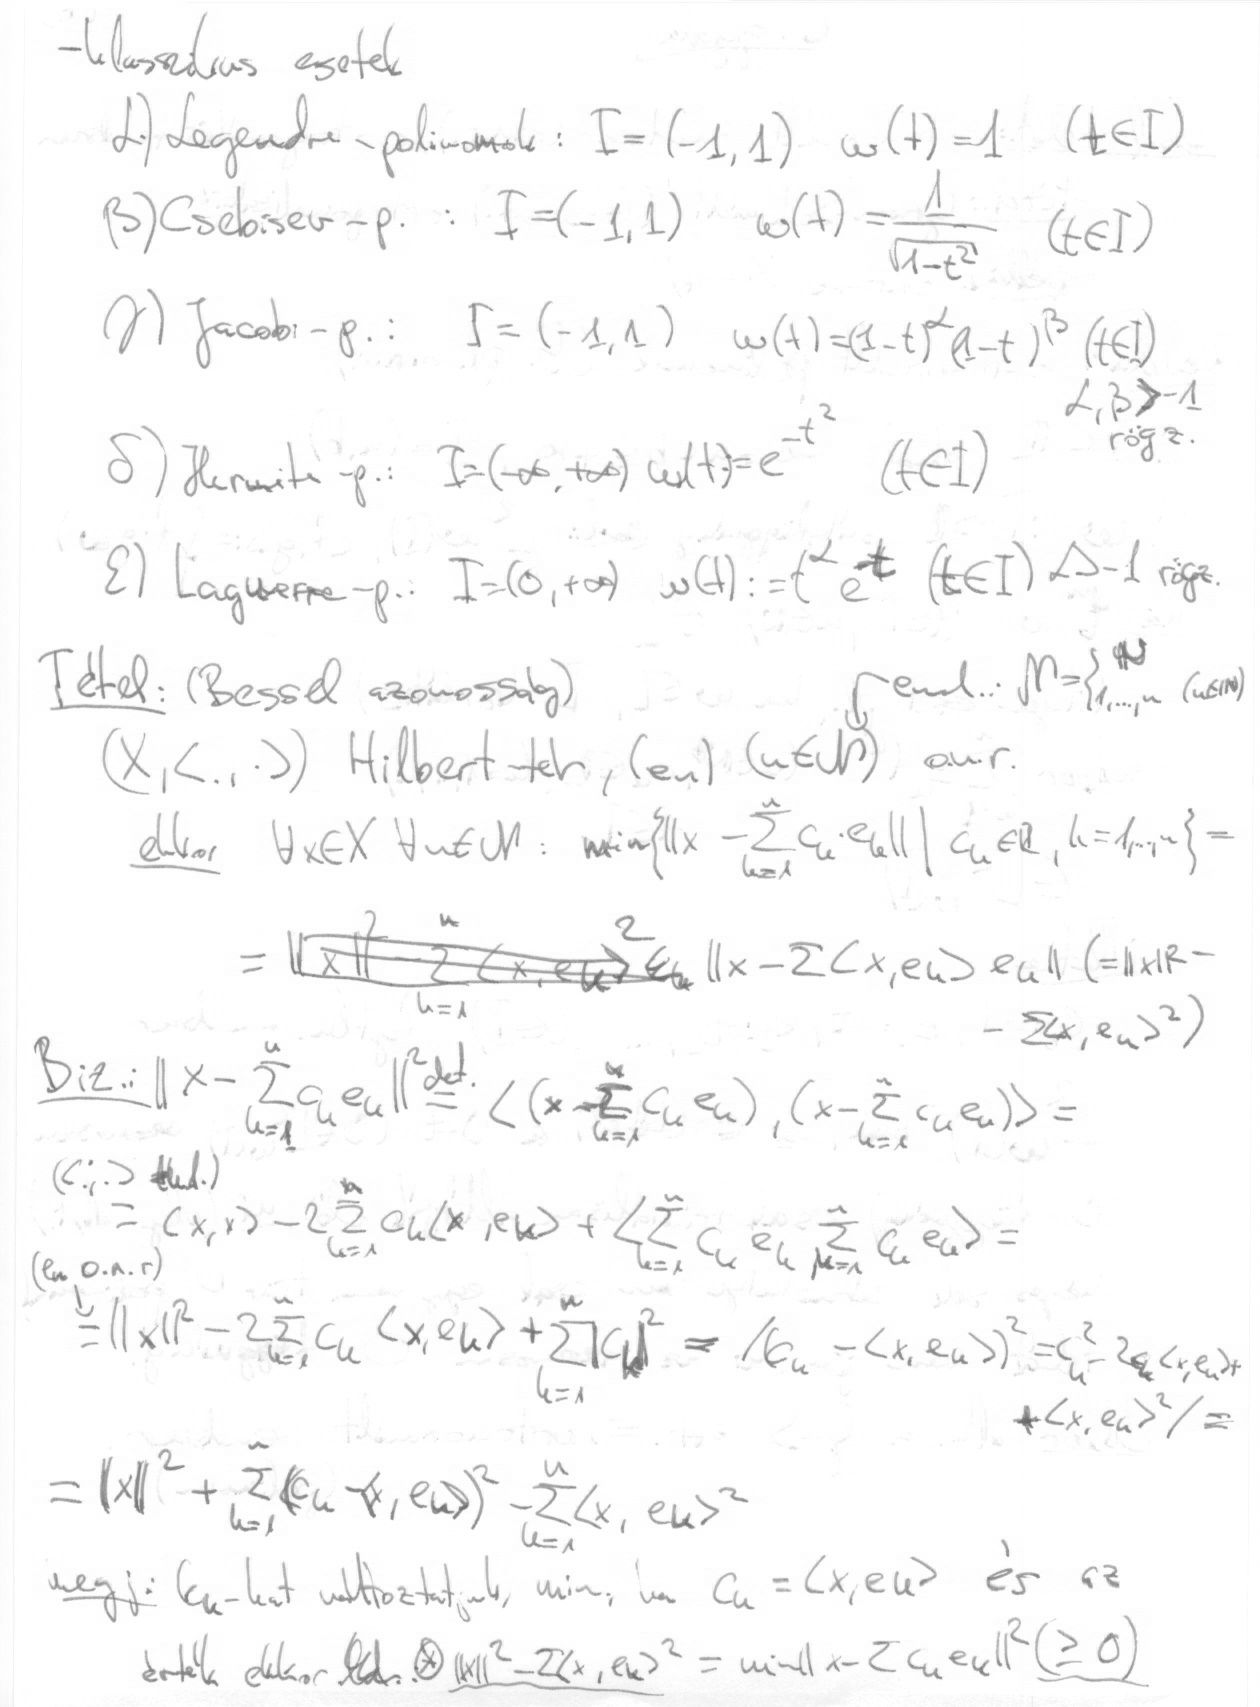 - klasszikus esetek
α) Legendre-polinomok: I = (-1, 1)   w(t) = 1   (t ∈ I)
β) Csebisev-p. : I = (-1, 1)   w(t) = 1/√(1-t²)   (t ∈ I)
γ) Jacobi-p.: I = (-1, 1)   w(t) = (1-t)^α (1-t)^β (t ∈ I)
α, β > -1
rögz.
δ) Hermite-p.: I = (-∞, +∞) w(t) = e^{-t²}   (t ∈ I)
ε) Laguerre-p.: I = (0, +∞)   w(t) := t^α e^{-t}   (t ∈ I) α > -1 rögz.
Tétel: (Bessel azonosság)   N = { ℕ ; 1,...,n (n ∈ ℕ)
(X, <., .>) Hilbert-tér, (en) (n ∈ N) o.n.r.
ekkor ∀x∈X ∀n∈N : min{||x - Σ_{k=1}^{n} c_k · e_k|| | c_k ∈ ℝ, k = 1,..,n} =
= ||x - Σ<x, e_k> e_k|| (= ||x||² -
- Σ<x, e_k>²)
Biz.: ||x - Σ_{k=1}^{n} c_k e_k||² =^{def.} <(x - Σ_{k=1}^{n} c_k e_k), (x - Σ_{k=1}^{n} c_k e_k)> =
(<.,.> tul.)
= <x, x> - 2 Σ_{k=1}^{n} c_k <x, e_k> + <Σ_{k=1}^{n} c_k e_k, Σ_{k=1}^{n} c_k e_k> =
(e_n o.n.r)
= ||x||² - 2 Σ_{k=1}^{n} c_k <x, e_k> + Σ_{k=1}^{n} |c_k|² = /(c_k - <x, e_k>)² = c_k² - 2c_k<x, e_k> +
+ <x, e_k>² / =
= ||x||² + Σ_{k=1}^{n} (c_k - <x, e_k>)² - Σ_{k=1}^{n} <x, e_k>²
megj: c_k-kat változtatjuk, min, ha c_k = <x, e_k> és az
érték ekkor ⊛ ||x||² - Σ<x, e_k>² = min||x - Σ c_k e_k||² (≥ 0)